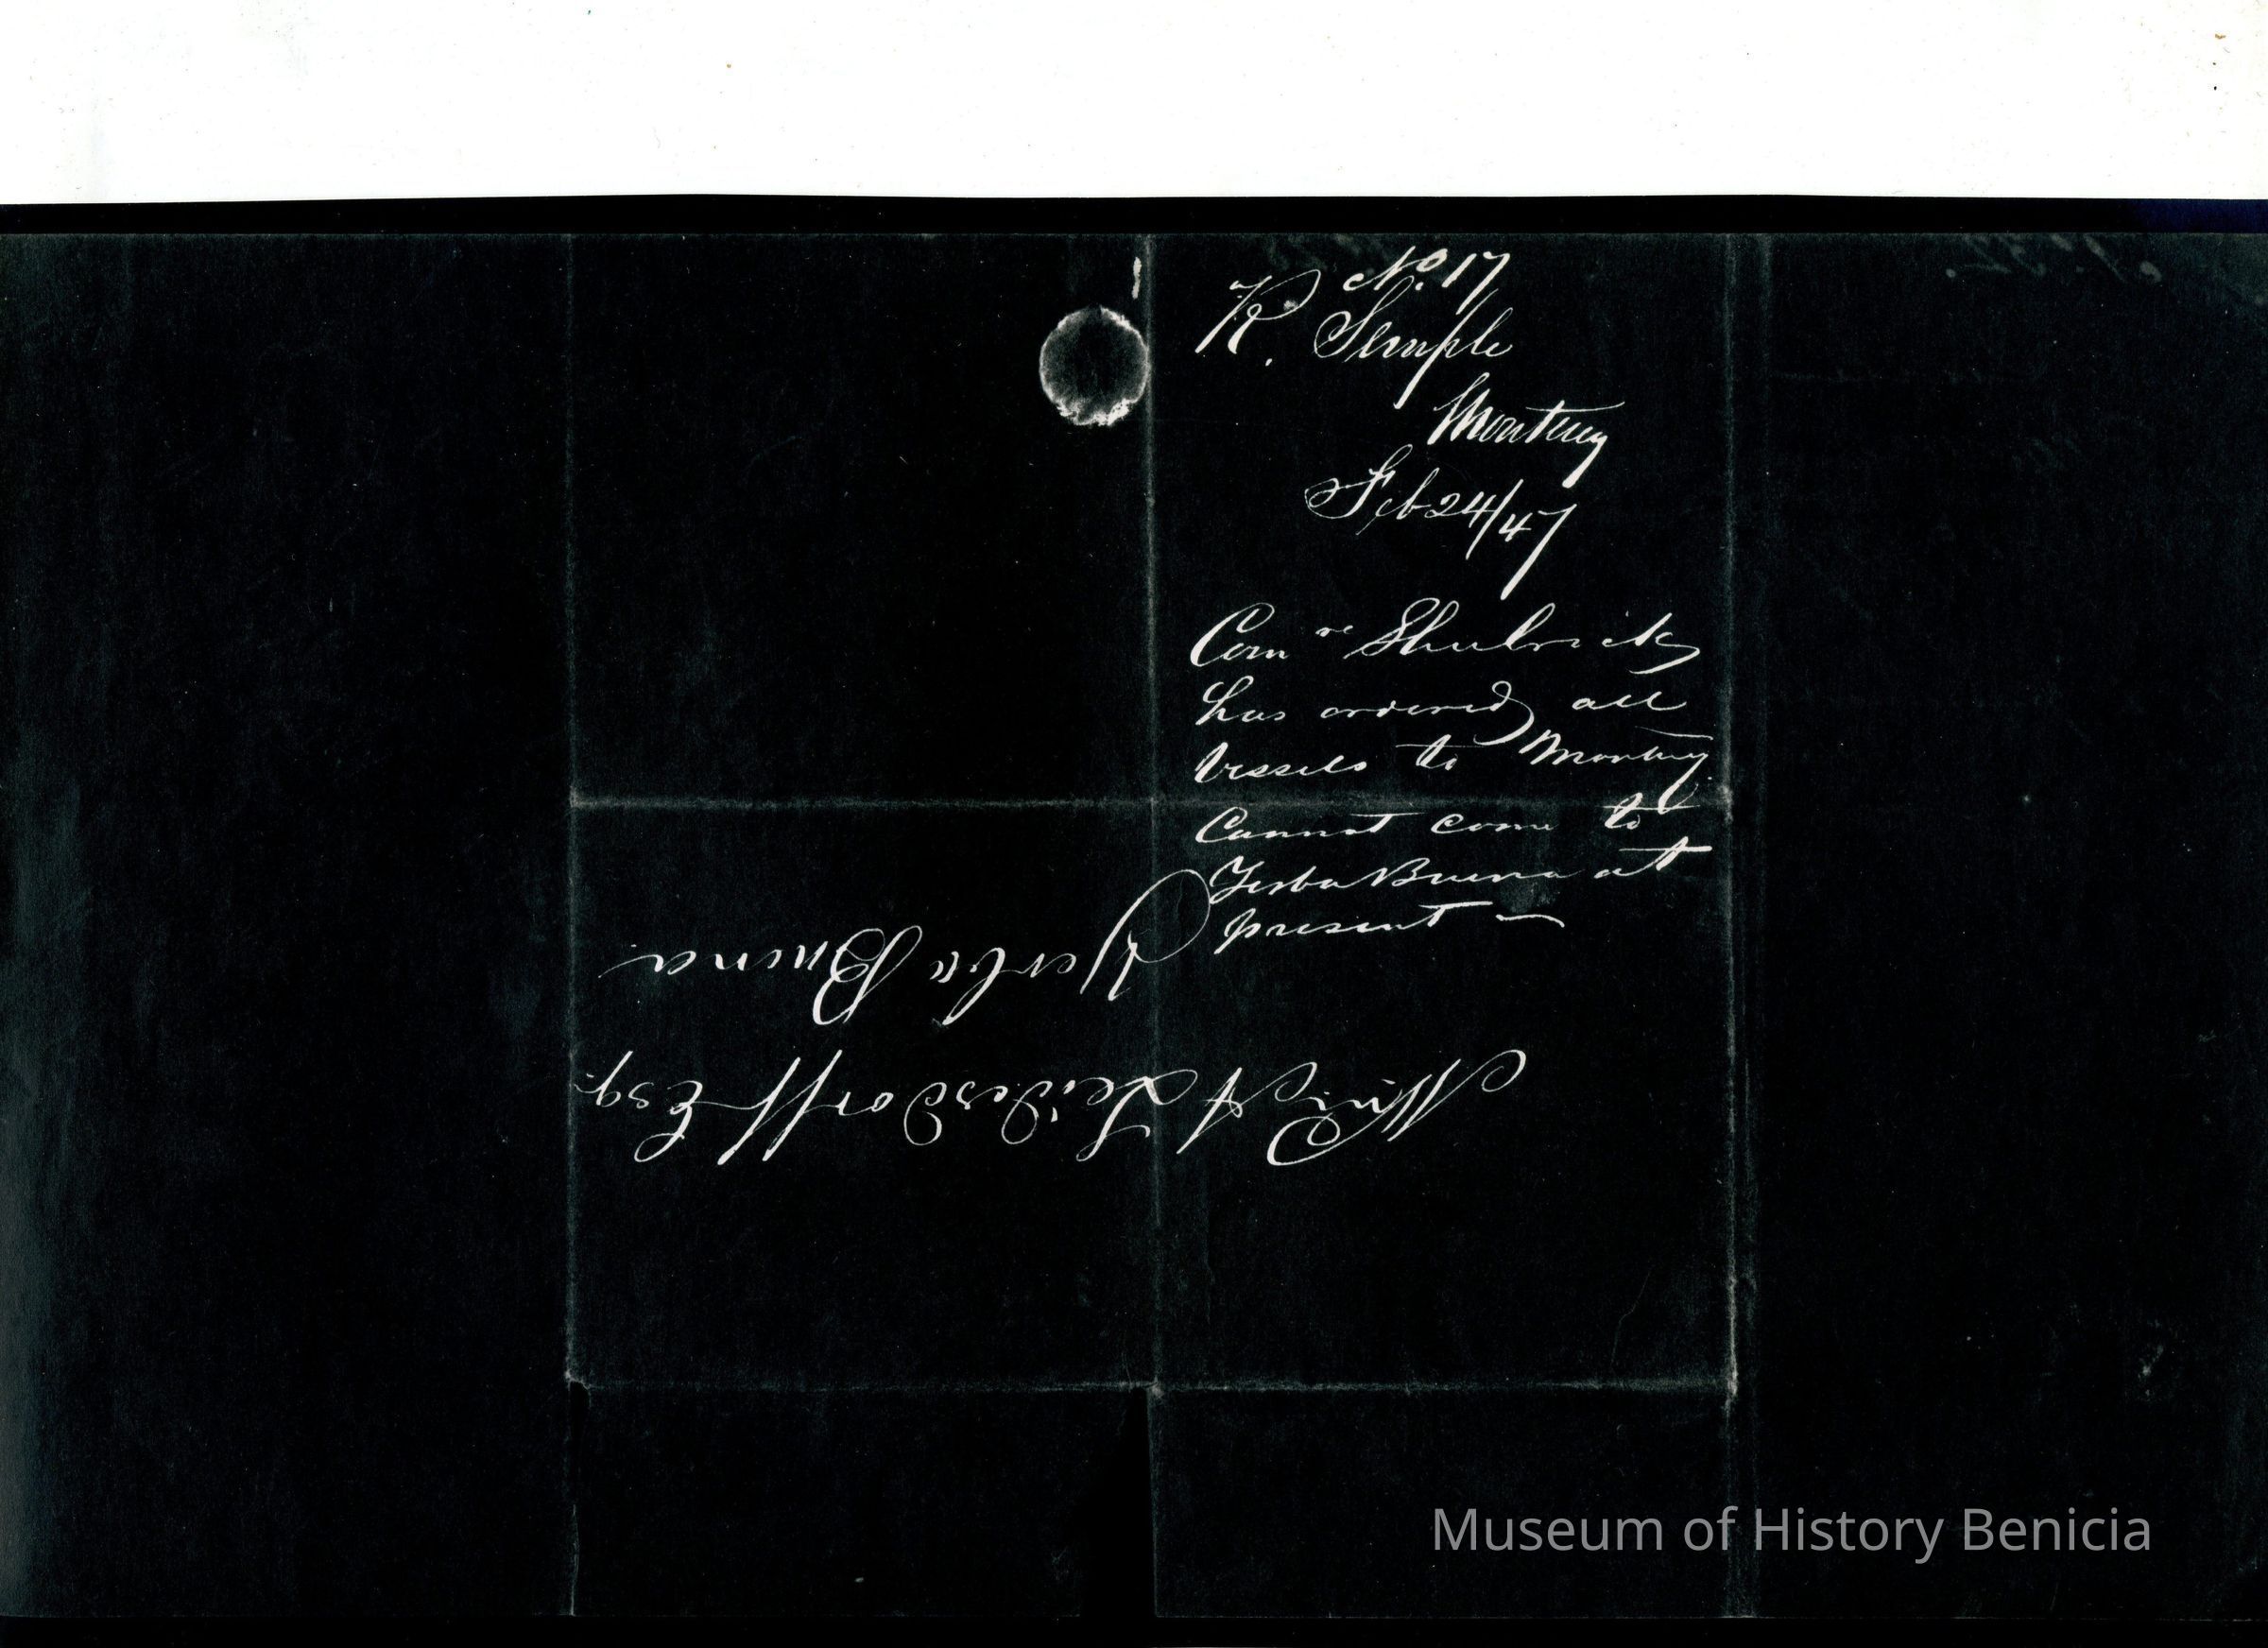 No. 17
R. Semple
Monterey
Feb 24/47
Comre Shubrick
has ordered all
vessels to Monterey
Cannot come to
Yerba Buena at
present —
Wm A Leidesdorff Esq.
Yerba Buena
Museum of History Benicia